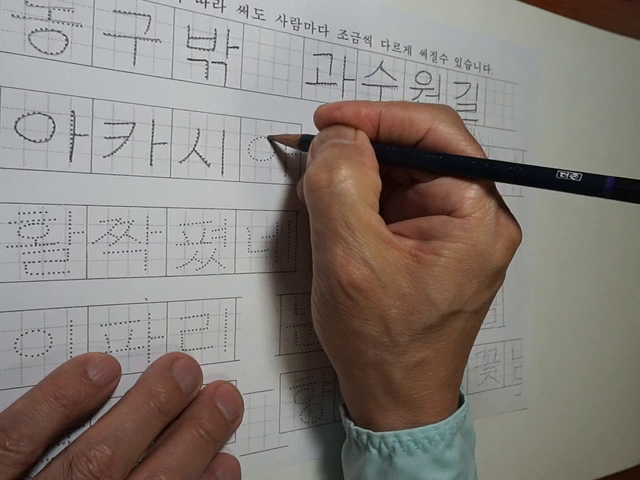 따라 써도 사람마다 조금씩 다르게 써질수 있습니다.
동구밖 과수원길
아카시
활짝 폈네
이파리
꽃